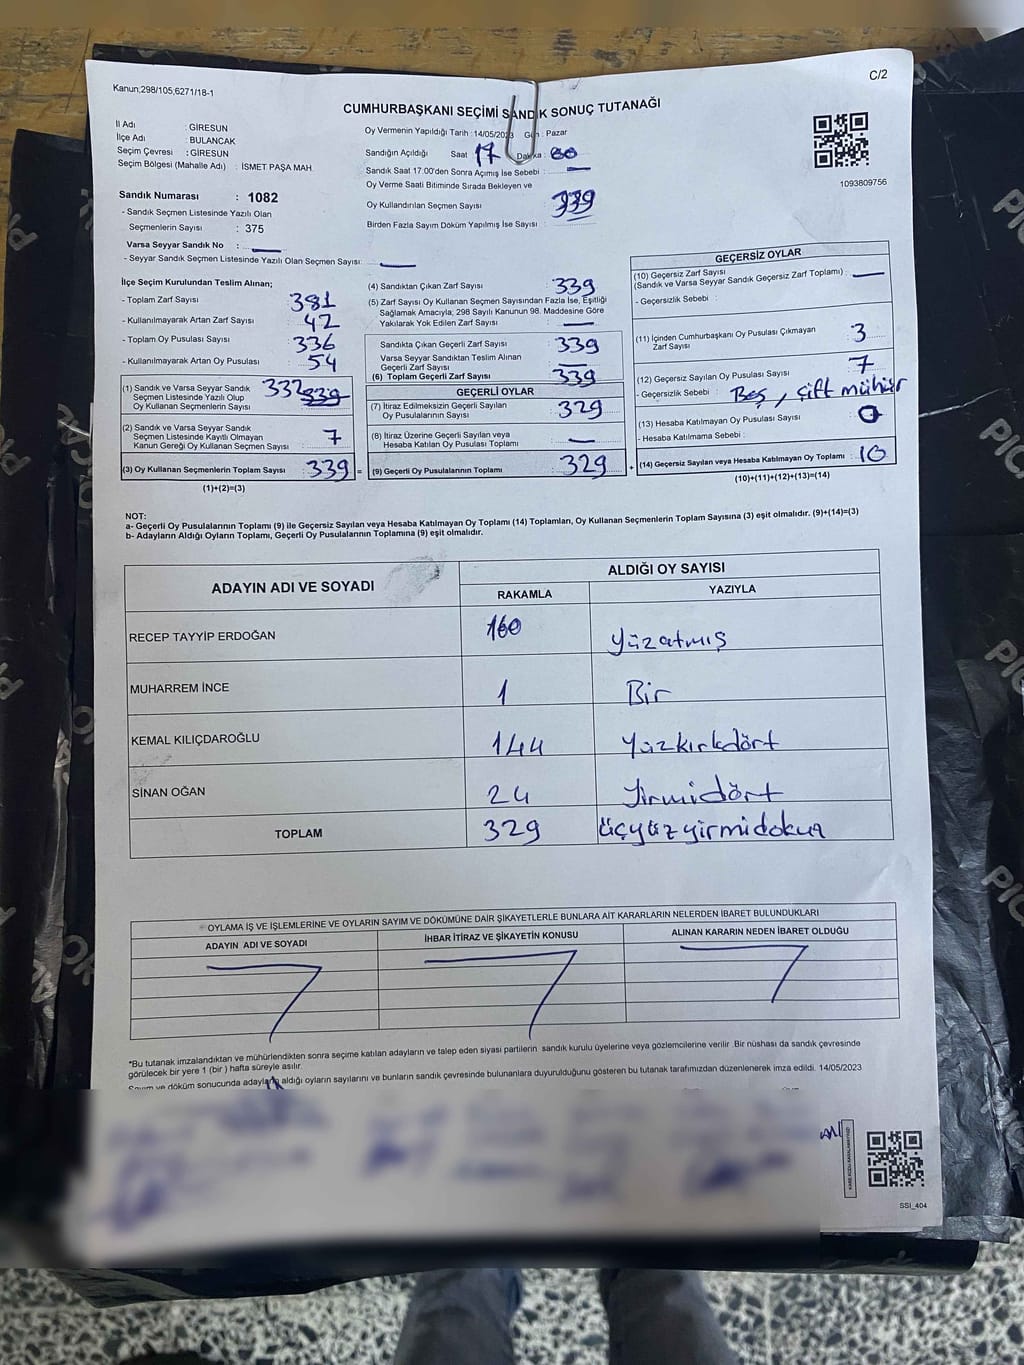 C/2
Kanun,298/105,6271/18-1
CUMHURBAŞKANI SEÇİMİ SANDIK SONUÇ TUTANAĞI
İl Adı : GİRESUN
İlçe Adı : BULANCAK
Seçim Çevresi : GİRESUN
Seçim Bölgesi (Mahalle Adı) : İSMET PAŞA MAH
Sandık Numarası : 1082
- Sandık Seçmen Listesinde Yazılı Olan
Seçmenlerin Sayısı : 375
Varsa Seyyar Sandık No :
- Seyyar Sandık Seçmen Listesinde Yazılı Olan Seçmen Sayısı:
Oy Vermenin Yapıldığı Tarih :14/05/2023 Gün : Pazar
Sandığın Açıldığı Saat 17 Dakika : 00
Sandık Saat 17.00'den Sonra Açımış İse Sebebi : —
Oy Verme Saati Bitiminde Sırada Bekleyen ve
Oy Kullandırılan Seçmen Sayısı 339
Birden Fazla Sayım Döküm Yapılmış İse Sayısı :
1093809756
İlçe Seçim Kurulundan Teslim Alınan;
- Toplam Zarf Sayısı 381
- Kullanılmayarak Artan Zarf Sayısı 42
- Toplam Oy Pusulası Sayısı 336
- Kullanılmayarak Artan Oy Pusulası 54
(1) Sandık ve Varsa Seyyar Sandık
Seçmen Listesinde Yazılı Olup
Oy Kullanan Seçmenlerin Sayısı 332 339
(2) Sandık ve Varsa Seyyar Sandık
Seçmen Listesinde Kayıtlı Olmayan
Kanun Gereği Oy Kullanan Seçmen Sayısı 7
(3) Oy Kullanan Seçmenlerin Toplam Sayısı 339 =
(1)+(2)=(3)
(4) Sandıktan Çıkan Zarf Sayısı 339
(5) Zarf Sayısı Oy Kullanan Seçmen Sayısından Fazla İse, Eşitliği
Sağlamak Amacıyla; 298 Sayılı Kanunun 98. Maddesine Göre
Yakılarak Yok Edilen Zarf Sayısı —
Sandıkta Çıkan Geçerli Zarf Sayısı 339
Varsa Seyyar Sandıktan Teslim Alınan
Geçerli Zarf Sayısı : —
(6) Toplam Geçerli Zarf Sayısı 339
GEÇERLİ OYLAR
(7) İtiraz Edilmeksizin Geçerli Sayılan
Oy Pusulalarının Sayısı 329
(8) İtiraz Üzerine Geçerli Sayılan veya
Hesaba Katılan Oy Pusulası Toplamı —
(9) Geçerli Oy Pusulalarının Toplamı 329 +
GEÇERSİZ OYLAR
(10) Geçersiz Zarf Sayısı
(Sandık ve Varsa Seyyar Sandık Geçersiz Zarf Toplamı) : —
- Geçersizlik Sebebi :
(11) İçinden Cumhurbaşkanı Oy Pusulası Çıkmayan
Zarf Sayısı 3
(12) Geçersiz Sayılan Oy Pusulası Sayısı 7
- Geçersizlik Sebebi : Boş, çift mühür
(13) Hesaba Katılmayan Oy Pusulası Sayısı 0
- Hesaba Katılmama Sebebi :
(14) Geçersiz Sayılan veya Hesaba Katılmayan Oy Toplamı : 10
(10)+(11)+(12)+(13)=(14)
NOT:
a- Geçerli Oy Pusulalarının Toplamı (9) ile Geçersiz Sayılan veya Hesaba Katılmayan Oy Toplamı (14) Toplamları, Oy Kullanan Seçmenlerin Toplam Sayısına (3) eşit olmalıdır. (9)+(14)=(3)
b- Adayların Aldığı Oyların Toplamı, Geçerli Oy Pusulalarının Toplamına (9) eşit olmalıdır.
ADAYIN ADI VE SOYADI
ALDIĞI OY SAYISI
RAKAMLA YAZIYLA
RECEP TAYYİP ERDOĞAN 160 Yüzatmış
MUHARREM İNCE 1 Bir
KEMAL KILIÇDAROĞLU 144 Yüzkırkdört
SİNAN OĞAN 24 Yirmidört
TOPLAM 329 üçyüzyirmidokuz
OYLAMA İŞ VE İŞLEMLERİNE VE OYLARIN SAYIM VE DÖKÜMÜNE DAİR ŞİKAYETLERLE BUNLARA AİT KARARLARIN NELERDEN İBARET BULUNDUKLARI
ADAYIN ADI VE SOYADI İHBAR İTİRAZ VE ŞİKAYETİN KONUSU ALINAN KARARIN NEDEN İBARET OLDUĞU
*Bu tutanak imzalandıktan ve mühürlendikten sonra seçime katılan adayların ve talep eden siyasi partilerin sandık kurulu üyelerine veya gözlemcilerine verilir .Bir nüshası da sandık çevresinde
görülecek bir yere 1 (bir ) hafta süreyle asılır.
Sayım ve döküm sonucunda adayların aldığı oyların sayılarını ve bunların sandık çevresinde bulunanlara duyurulduğunu gösteren bu tutanak tarafımızdan düzenlenerek imza edildi. 14/05/2023
SSİ_404